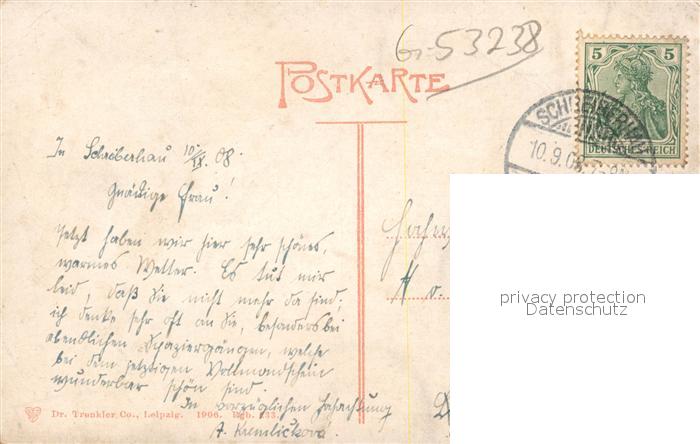 Gr-53238
POSTKARTE
5 5
DEUTSCHES REICH
SCHREIBERHAU
10.9.08
In Schreiberhau 10/IX. 08.
Gnädige Frau!
Jetzt haben wir hier sehr schönes,
warmes Wetter. Es tut mir
leid, daß Sie nicht mehr da sind;
ich denke sehr oft an Sie, besonders bei
abendlichen Spaziergängen, welche
bei dem jetzigen Vollmondschein
wunderbar schön sind.
In vorzüglicher Hochachtung
A.
privacy protection
Datenschutz
Dr. Trenkler Co., Leipzig. 1906. 133.